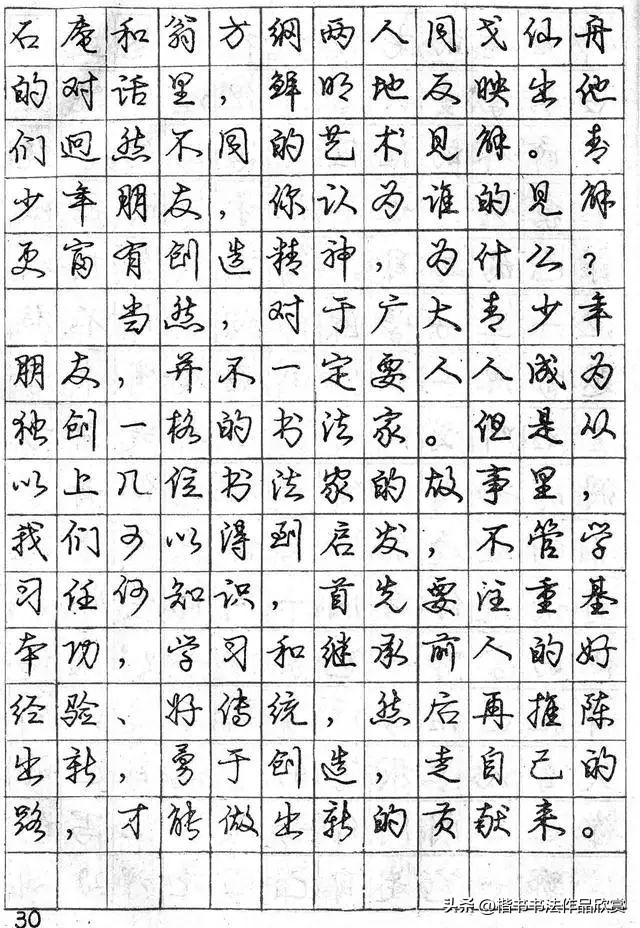 石庵和翁方纲两人同戈仙舟
的对话里，鲜明地反映出他
们迥然不同的艺术见解。青
少年朋友，你认为谁的见解
更富有创造精神，为什么？
当然，对于广大青少年
朋友，并不一定要人人成为
独创一格的书法家。但是从
以上几位书法家的故事里，
我们可以得到启发，不管学
习任何知识，首先要注重基
本功，学习和继承前人的好
经验、好传统，然后再推陈
出新，勇于创造，走自己的
路，才能做出新的贡献来。
30
头条@楷书书法作品欣赏